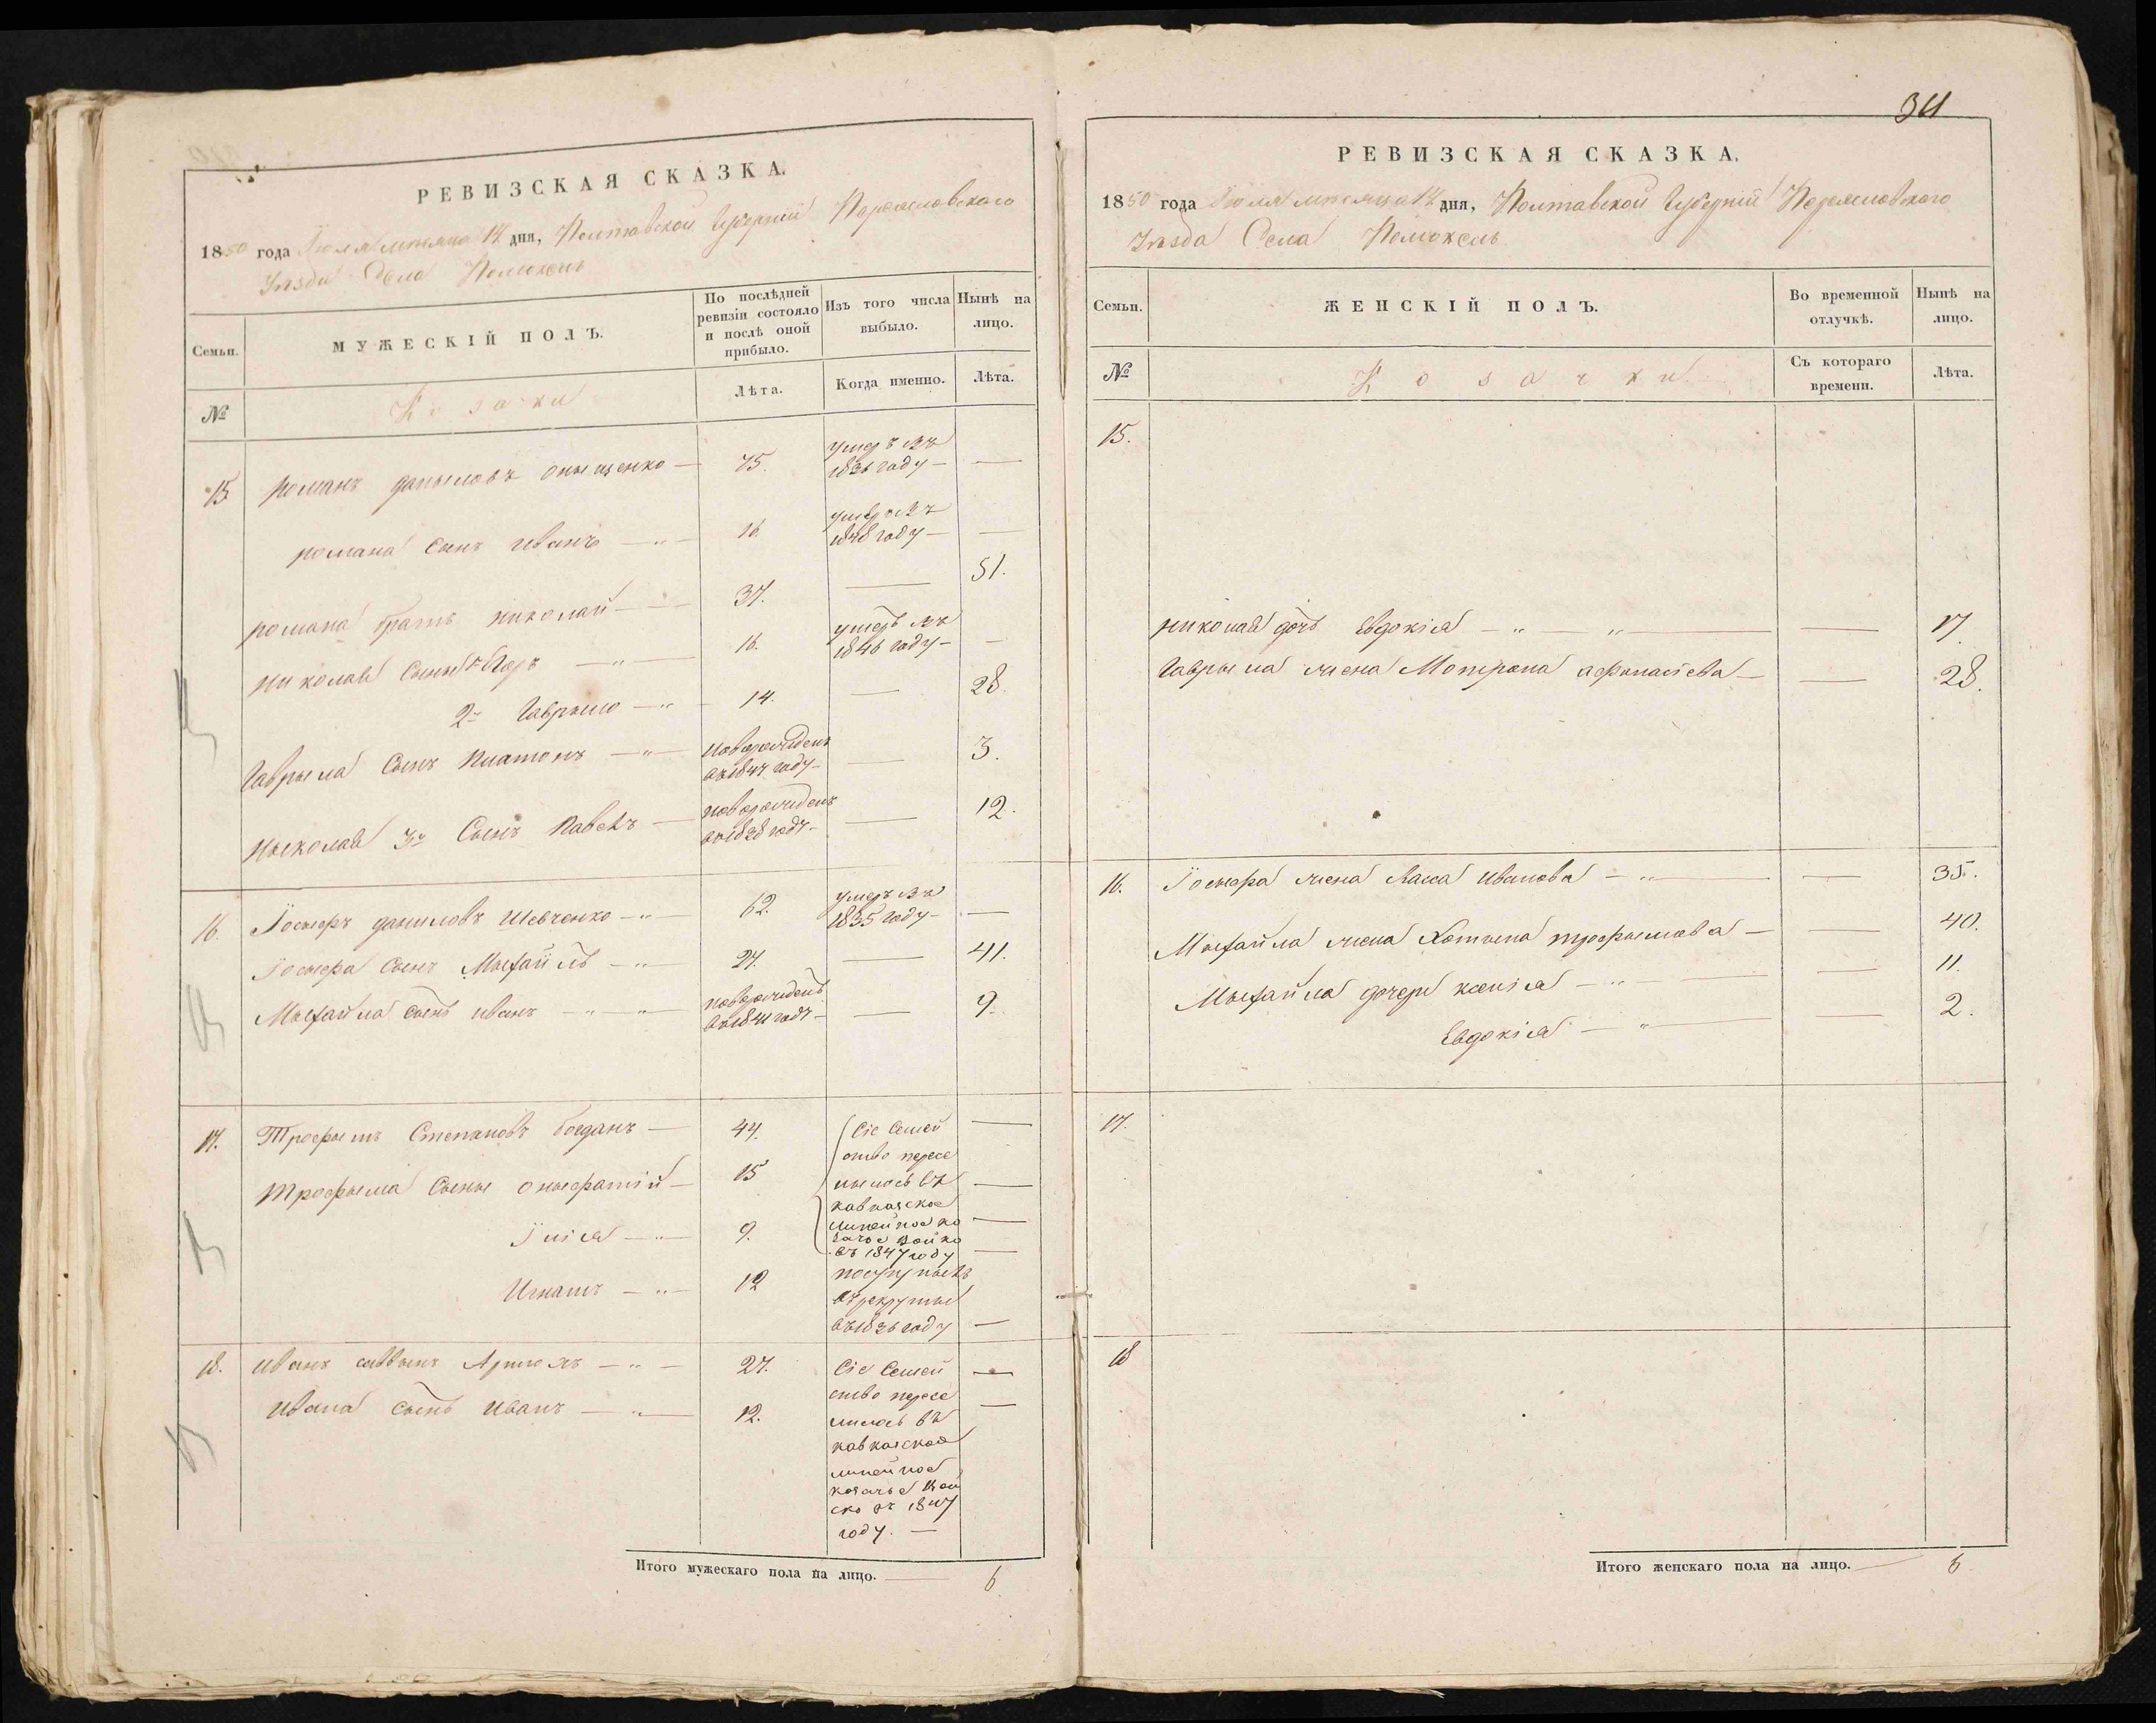 РЕВИЗСКАЯ СКАЗКА.
1850 года Іюля мѣсяца дня, Полтавской Губерніи Переяславского
Уѣзда Села Помокль
Семьи.
МУЖЕСКІЙ ПОЛЪ.
По послѣдней ревизіи состояло и послѣ оной прибыло.
Изъ того числа выбыло.
Нынѣ на лицо.
№
Козаки
Лѣта.
Когда именно.
Лѣта.
15 романъ даныловъ онищенко — 75. умеръ въ 1836 году — —
романа сынъ иванъ — 16. умеръ въ 1848 году — —
романа братъ николай — 37. — 51.
николая сыны 1й — 16. умеръ въ 1846 году — —
2й Гаврыло — 14. — 28.
Гаврыла сынъ платонъ — новорожденъ въ 1847 году — — 3.
ныколая 3й сынъ павелъ — новорожденъ въ 1838 году — — 12.
16. Іосыфъ даниловъ Шевченко — 62. умеръ въ 1835 году — —
Іосыфа сынъ Мыхайлъ — 24. — 41.
Мыхайла сынъ иванъ — новорожденъ въ 1841 году — — 9.
17. Трофымъ Степановъ богданъ — 44. Сіе Семей —
ство пересе
Трофыма сыны оныфатій — 15 лылось въ —
кавказское
Ілія — 9. линейное ко —
зачье войско
въ 1847 году —
Игнатъ — 12 поступылъ
въ рекруты
въ 1836 году —
18. иванъ саввынъ — 27. Сіе Семей —
ство пересе
ивана сынъ иванъ — 12. лилось въ —
кавказское
линейное
козачье вой
ско въ 1847
году. —
Итого мужескаго пола на лицо. — 6
34
РЕВИЗСКАЯ СКАЗКА.
1850 года Іюля мѣсяца дня, Полтавской Губерніи Переяславского
Уѣзда Села Помоклъ
Семьи.
ЖЕНСКІЙ ПОЛЪ.
Во временной отлучкѣ.
Нынѣ на лицо.
№
Козачки
Съ котораго времени.
Лѣта.
15.
николая дочь Евдокія — — 17.
Гаврыла жена Мотрона афанасіева — — 28.
16. Іосыфа жена иванова — — 35.
Мыхайла жена трофымова — — 40.
Мыхайла дочери ксенія — — 11.
Евдокія — — 2.
17.
18
Итого женскаго пола на лицо. — 6